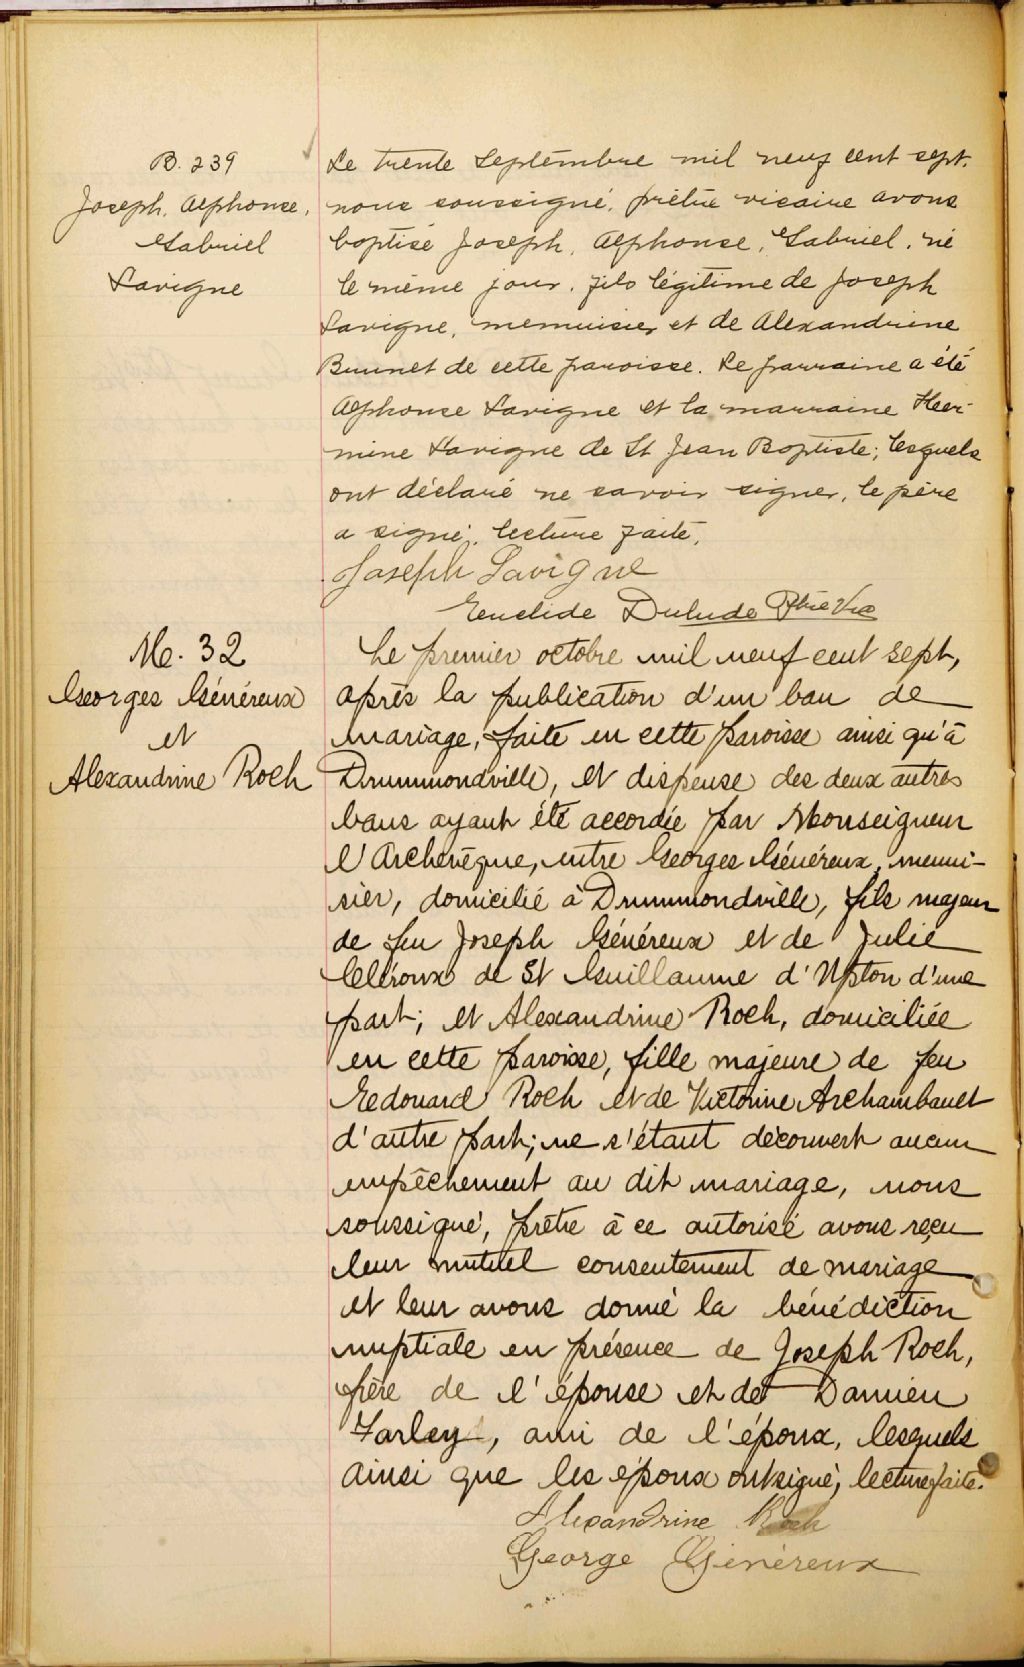 B. 239
Joseph, Alphonse,
Gabriel
Lavigne
Le trente Septembre mil neuf cent sept.
nous soussigné, prêtre vicaire avons
baptisé Joseph, Alphonse, Gabriel, né
le même jour, fils légitime de Joseph
Lavigne, menuisier et de Alexandrine
Brunet de cette paroisse. Le parraine a été
Alphonse Lavigne et la marraine Her-
mine Lavigne de St Jean Baptiste; lesquels
ont déclaré ne savoir signer, le père
a signé. lecture faite.
Joseph Lavigne
Euclide Dulude Ptre Vic
M. 32
Georges Généreux
et
Alexandrine Roch
Le premier octobre mil neuf cent sept,
après la publication d'un ban de
mariage, faite en cette paroisse ainsi qu'à
Drummondville, et dispense des deux autres
bans ayant été accordée par Monseigneur
l'Archevêque, entre Georges Généreux, menui-
sier, domicilié à Drummondville, fils majeur
de feu Joseph Généreux et de Julie
Cléroux de St Guillaume d'Upton d'une
part; et Alexandrine Roch, domiciliée
en cette paroisse, fille majeure de feu
Edouard Roch et de Victorine Archambault
d'autre part; ne s'étant découvert aucun
empêchement au dit mariage, nous
soussigné, prêtre à ce autorisé avons reçu
leur mutuel consentement de mariage
et leur avons donné la bénédiction
nuptiale en présence de Joseph Roch,
frère de l'épouse et de Damien
Farley, ami de l'époux, lesquels
ainsi que les époux ont signé, lecture faite.
Alexandrine Roch
George Généreux